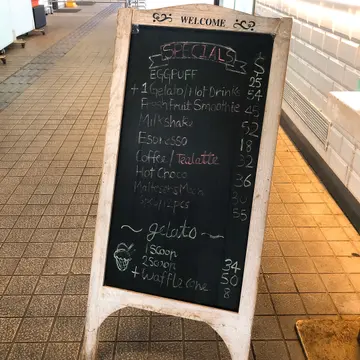 WELCOME
SPECIALS
EGGPUFF 25
+1Gelato/Hot Drinks 54
Fresh Fruit Smoothie 45
Milkshake 52
Espresso 18
Coffee/Tealatte 32
Hot Choco 36
35
~ gelato ~
1 scoop 34
2 scoop 50
+ Waffle cone 8